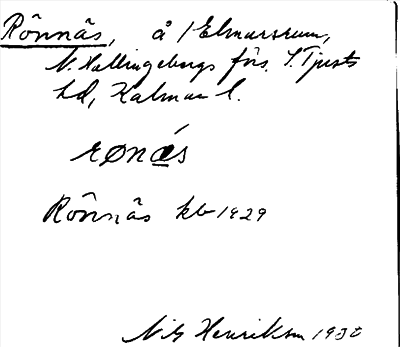 Rönnäs, å /Elmarsrum,
V. Hallingebergs förs. S. Tjusts
hd, Kalmar l.
rønæ̀s
Rönnäs kb 1929
Nils Henrikson 1930